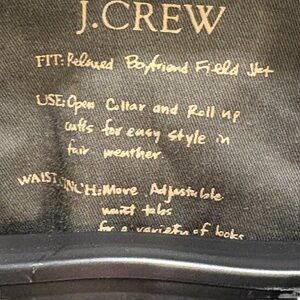 J.CREW
FIT: Relaxed Boyfriend Field Jkt
USE: Open Collar and Roll up
cuffs for easy style in
fair weather.
WAIST CINCH: Move Adjustable
waist tabs
for a variety of looks